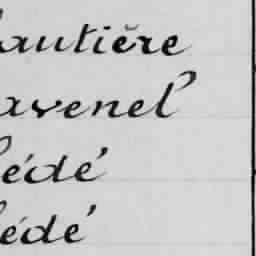 autière
avenel
édé
édé